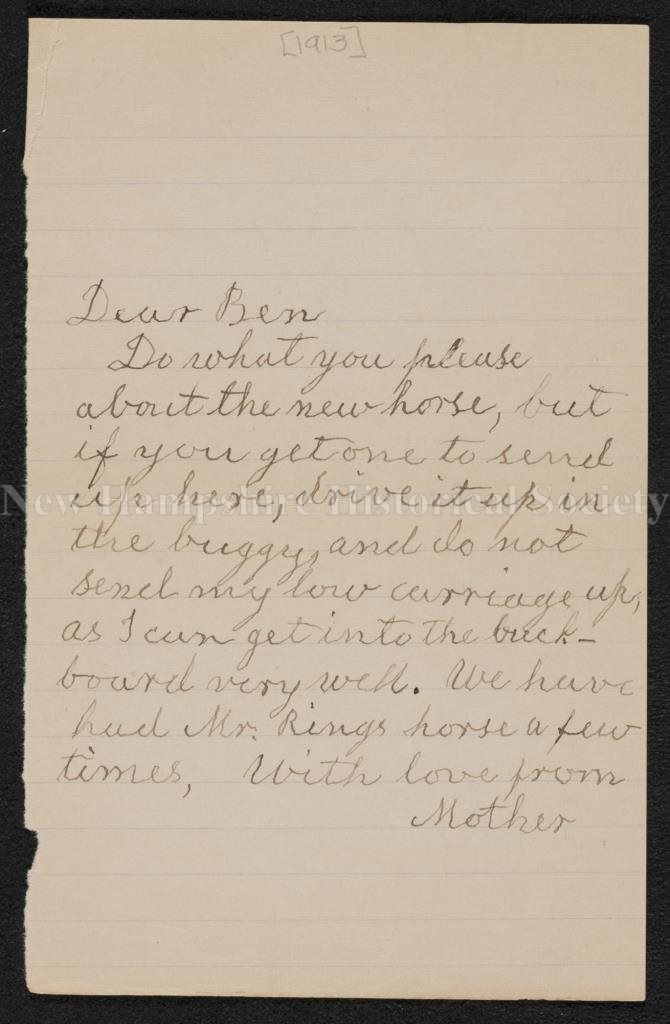 [1913]
Dear Ben
Do what you please
about the new horse, but
if you get one to send
up here, drive it up in
New Hampshire Historical Society
the buggy, and do not
send my low carriage up,
as I can get into the buck-
board very well. We have
had Mr. Rings horse a few
times, With love from
Mother